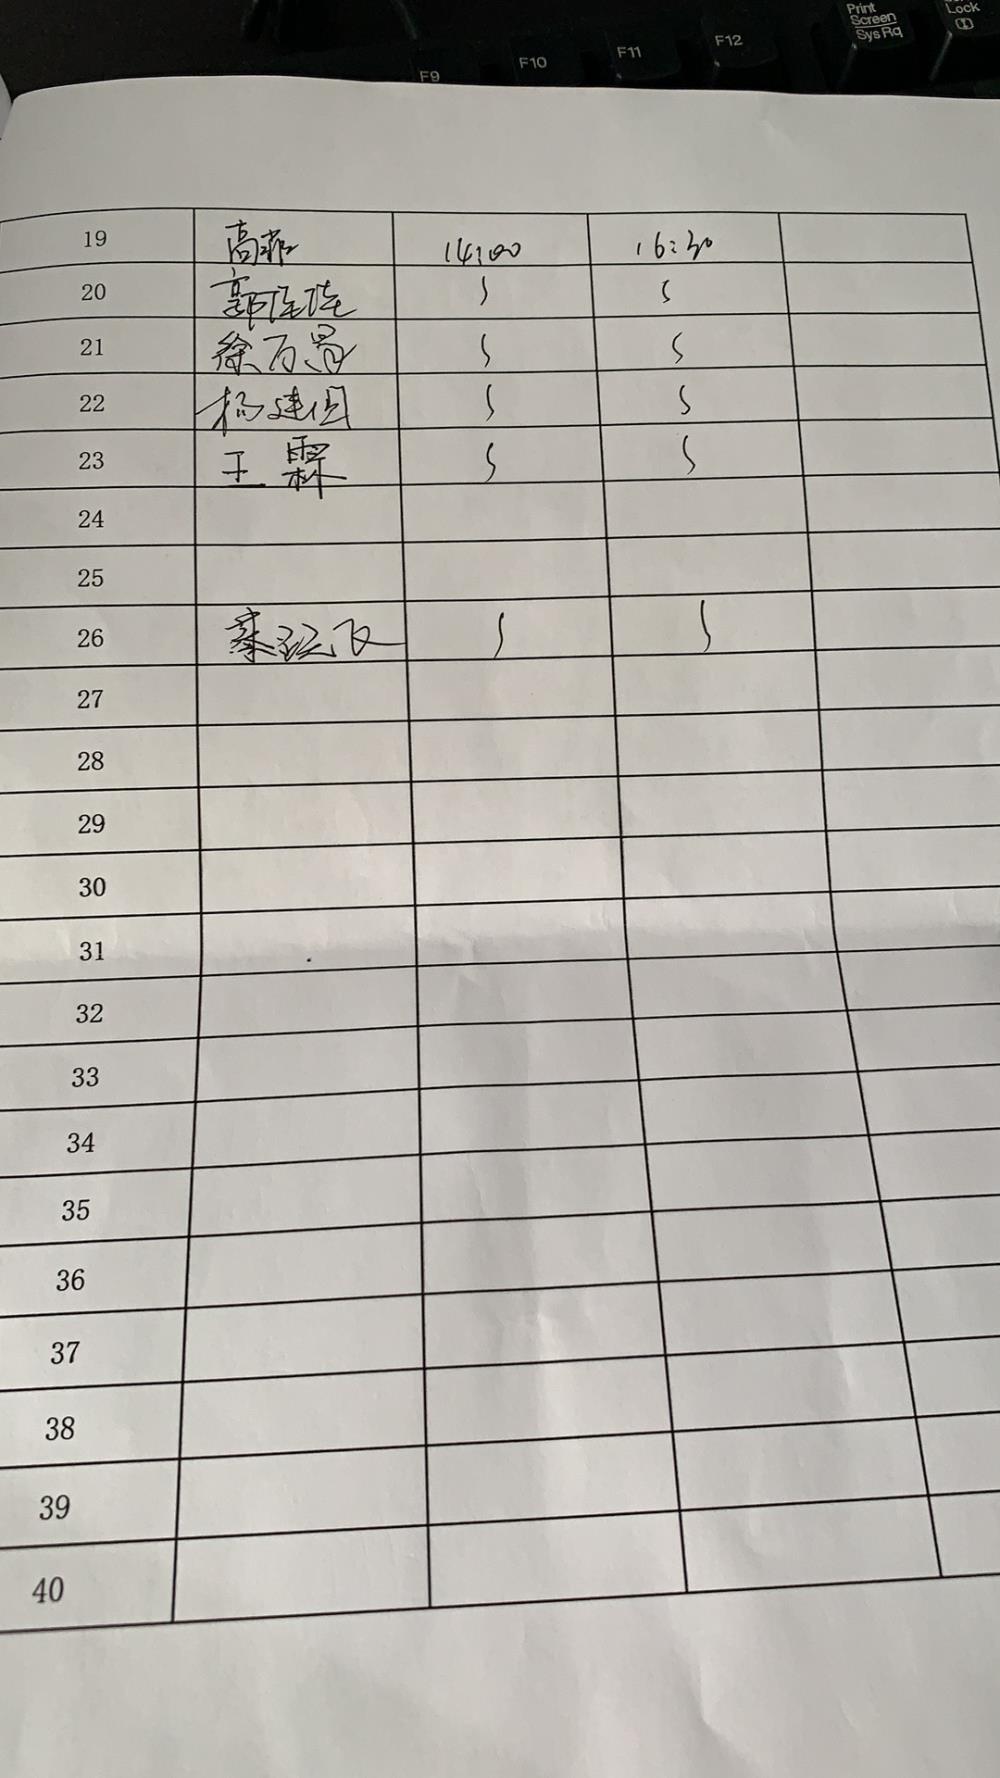 F9 F10 F11 F12 Print Screen SysRq Lock
19 高菲 14:00 16:30
20 郭佳佳
21 徐万昌
22 杨建国
23 王霖
24
25
26
27
28
29
30
31
32
33
34
35
36
37
38
39
40